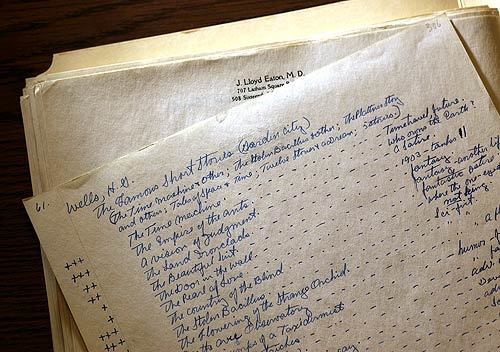 306
J. Lloyd Eaton, M. D.
707 Latham Square
508 Sixteenth
61. Wells, H. G.
The Famous Short Stories (Garden City)
(The Time machine & other; The Stolen Bacillus & other; The Plattner Story
and others; Tales of Space & Time; Twelve Stories & a Dream; 3 stories)
The Time Machine. Time travel, future,
The Empire of the ants. who owns the Earth?
A Vision of Judgment. A satire
+++ The Land Ironclads. 1903 tanks !!
++ The Beautiful Suit fantasy
+++ The Door in the wall. fantasy - another life
+ The Pearl of Love fantastic
+++ The Country of the Blind where the one-eyed
The Stolen Bacillus not king
++ The Flowering of the Strange Orchid. Sci-fict.
+ In the Avu Observatory " "
+++ of a Taxidermist humor of